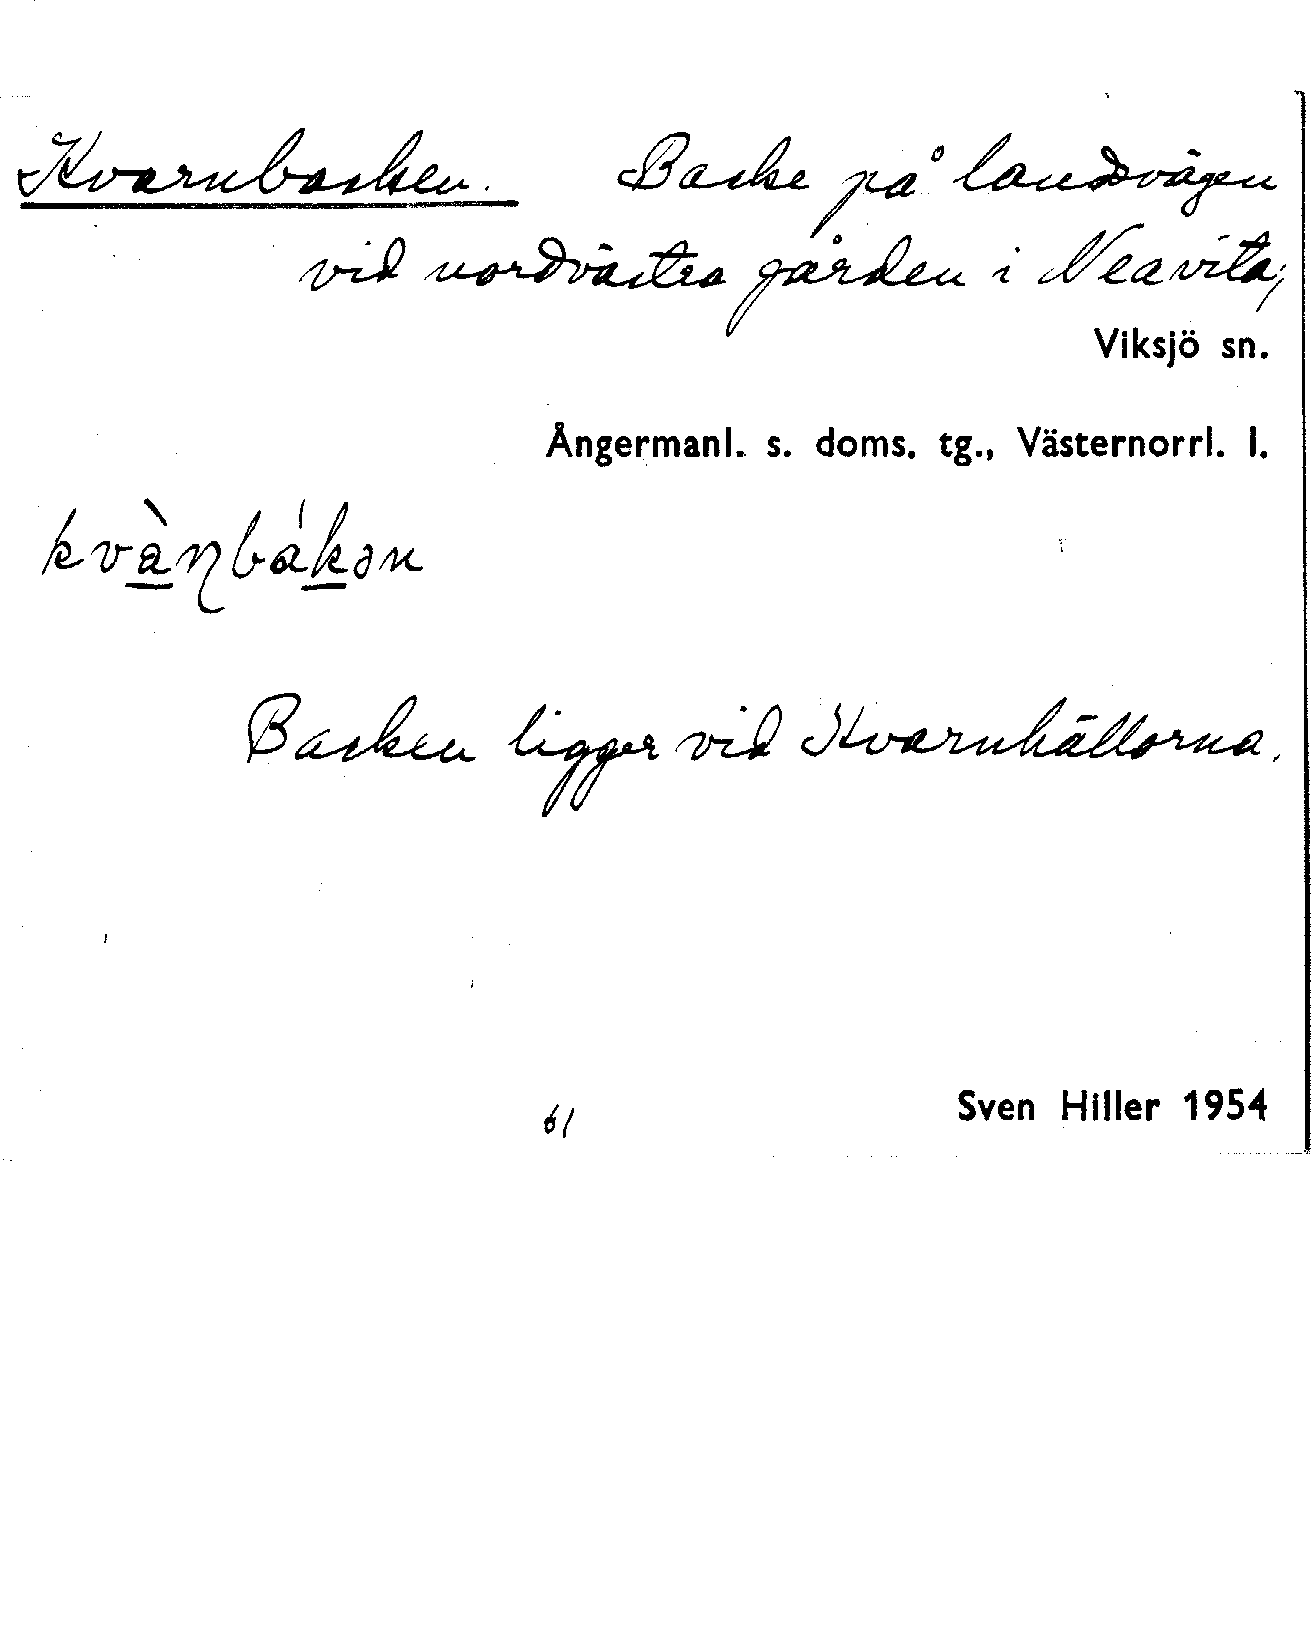 Kvarnbacken. Backe på landsvägen
vid nordvästra gården i Neavita,
Viksjö sn.
Ångermanl. s. doms. tg., Västernorrl. l.
kvàɳbákən
Backen ligger vid Kvarnhällorna.
61
Sven Hiller 1954